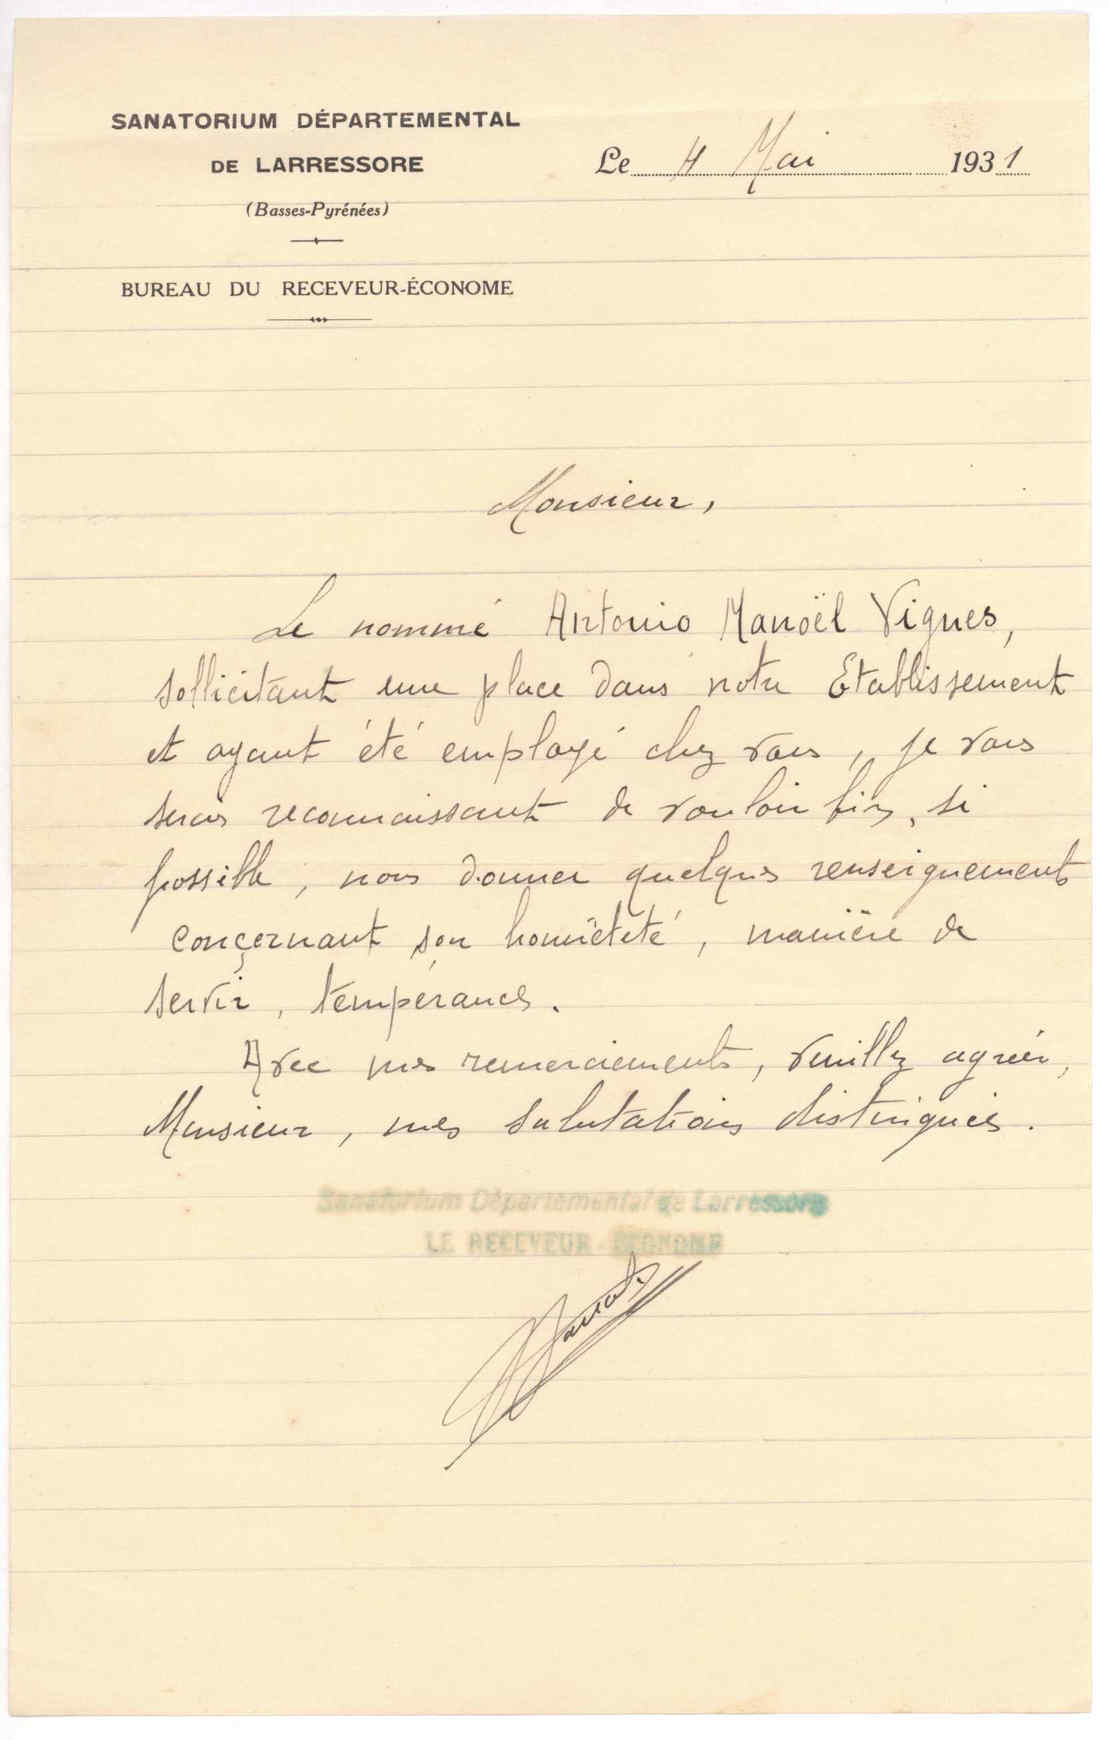 SANATORIUM DÉPARTEMENTAL
DE LARRESSORE
(Basses-Pyrénées)
BUREAU DU RECEVEUR-ÉCONOME
Le 4 Mai 1931
Monsieur,
Le nommé Antonio Manoël Vignes,
sollicitant une place dans notre Etablissement
et ayant été employé chez vous, je vous
serais reconnaissant de vouloir bien, si
possible, nous donner quelques renseignements
concernant son honnêteté, manière de
servir, tempérance.
Avec mes remerciements, veuillez agréer,
Monsieur, mes salutations distinguées.
Sanatorium Départemental de Larressore
LE RECEVEUR-ECONOME